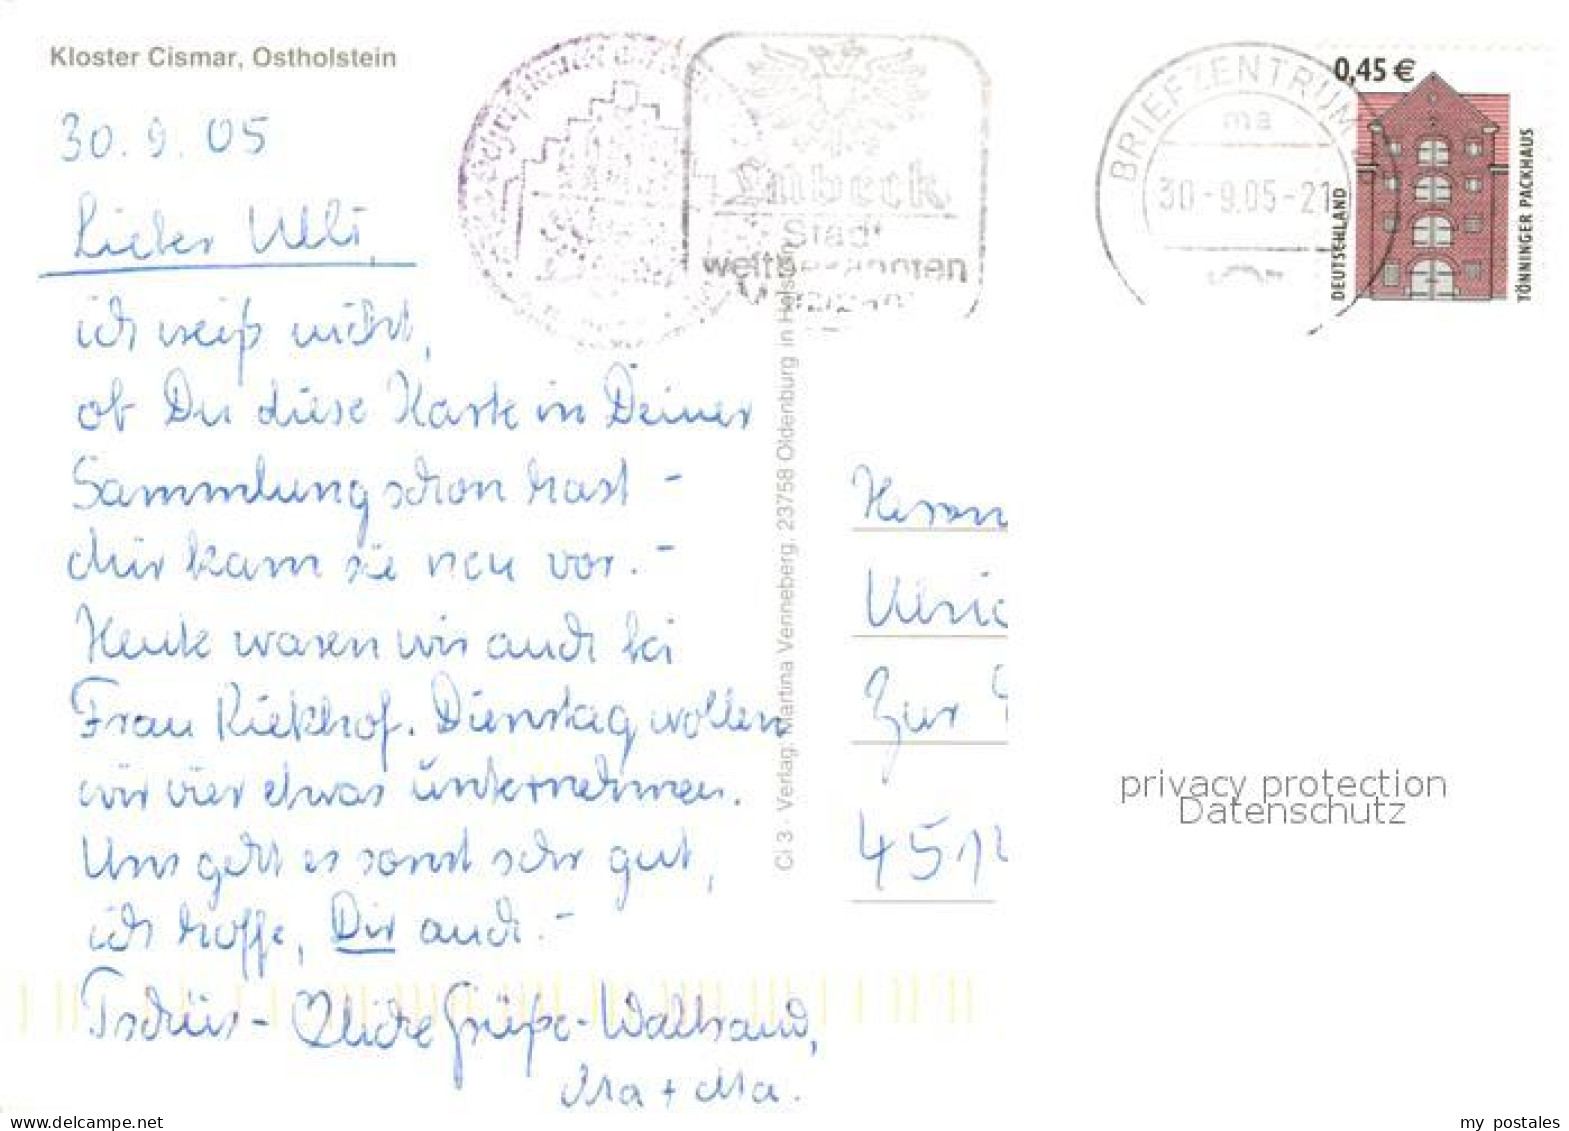 Kloster Cismar, Ostholstein
30.9.05
Lieber Ulli,
ich weiß nicht,
ob Du diese Karte in Deiner
Sammlung schon hast -
mir kam sie neu vor. -
Heute waren wir auch bei
Frau Riekhof. Dienstag wollen
wir vier etwas unternehmen.
Uns geht es sonst sehr gut,
ich hoffe, Dir auch. -
Tschüs - ♡liche Grüße - Waltraud,
+
Ci 3 - Verlag: Martina Venneberg, 23758 Oldenburg in Holstein
Lübeck
Stadt
weltbekannten
BRIEFZENTRUM
ma
30.-9.05-21
0,45 €
DEUTSCHLAND
TÖNNINGER PACKHAUS
Herrn
Ulric
Zur
451
privacy protection
Datenschutz
www.delcampe.net
my_postales